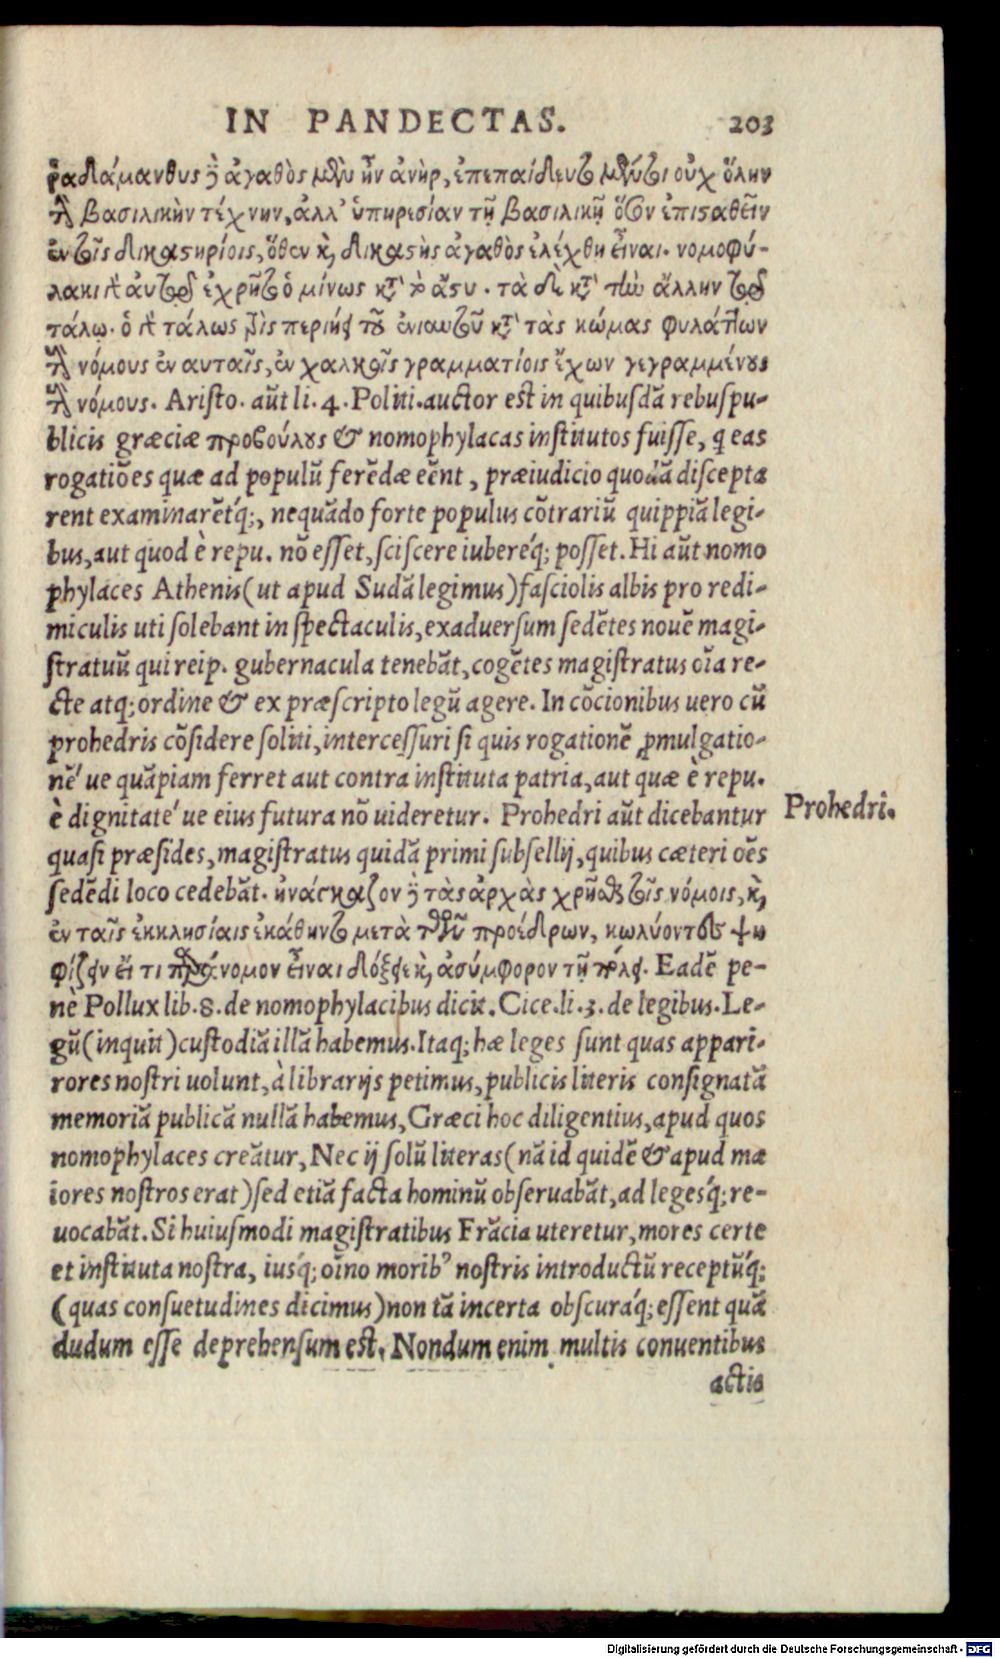 IN PANDECTAS. 203
ῥαδάμανθυς δὲ ἀγαθὸς μὲν ἦν ἀνὴρ, ἐπεπαίδευτο μέντοι οὐχ ὅλην
τὴν βασιλικὴν τέχνην, ἀλλ' ὑπηρεσίαν τῇ βασιλικῇ ὅσον ἐπιστατεῖν
ἐν τοῖς δικαστηρίοις, ὅθεν καὶ δικαστὴς ἀγαθὸς ἐλέχθη εἶναι. νομοφύ-
λακι γὰρ αὐτῷ ἐχρῆτο ὁ μίνως κατὰ τὸ ἄστυ. τὰ δὲ κατὰ τὴν ἄλλην τῷ
τάλῳ. ὁ γὰρ τάλως τρὶς περιῄει τοῦ ἐνιαυτοῦ κατὰ τὰς κώμας φυλάττων
τοὺς νόμους ἐν αυταῖς, ἐν χαλκοῖς γραμματίοις ἔχων γεγραμμένους
τοὺς νόμους. Aristo. aūt li. 4. Politi. auctor est in quibusdā rebuspu-
blicis græciæ προβούλους & nomophylacas institutos fuisse, q eas
rogatiōes quæ ad populū ferēdæ eēnt, præiudicio quodā discepta
rent examinarētq;, nequādo forte populus cōtrariū quippiā legi-
bus, aut quod è repu. nō esset, sciscere iubereq; posset. Hi aūt nomo
phylaces Athenis (ut apud Sudā legimus) fasciolis albis pro redi-
miculis uti solebant in spectaculis, exaduersum sedētes nouē magi-
stratuū qui reip. gubernacula tenebāt, cogētes magistratus oīa re-
cte atq; ordine & ex præscripto legū agere. In cōcionibus uero cū
prohedris cōsidere soliti, intercessuri si quis rogationē ꝓmulgatio-
nē ue quāpiam ferret aut contra instituta patria, aut quæ è repu.
è dignitate ue eius futura nō uideretur. Prohedri aūt dicebantur
Prohedri.
quasi præsides, magistratus quidā primi subsellij, quibus cæteri oēs
sedēdi loco cedebāt. ἠνάγκαζον δὲ τὰς ἀρχὰς χρῆσθαι τοῖς νόμοις, καὶ
ἐν ταῖς ἐκκλησίαις ἐκάθηντο μετὰ τῶν προέδρων, κωλύοντες ψη
φίζειν εἴ τι παράνομον εἶναι δόξειε καὶ ἀσύμφορον τῇ πόλει. Eadē pe-
nè Pollux lib. 8. de nomophylacibus dicit. Cice. li. 3. de legibus. Le-
gū (inquit) custodiā illā habemus. Itaq; hæ leges sunt quas appari-
rores nostri uolunt, à librarijs petimus, publicis literis consignatā
memoriā publicā nullā habemus, Græci hoc diligentius, apud quos
nomophylaces creātur, Nec ij solū literas (nā id quidē & apud mæ
iores nostros erat) sed etiā facta hominū obseruabāt, ad legesq; re-
uocabāt. Si huiusmodi magistratibus Frācia uteretur, mores certe
et instituta nostra, iusq; oīno morib' nostris introductū receptūq;
(quas consuetudines dicimus) non tā incerta obscuraq; essent quā
dudum esse deprehensum est. Nondum enim multis conuentibus
actis
Digitalisierung gefördert durch die Deutsche Forschungsgemeinschaft - DFG